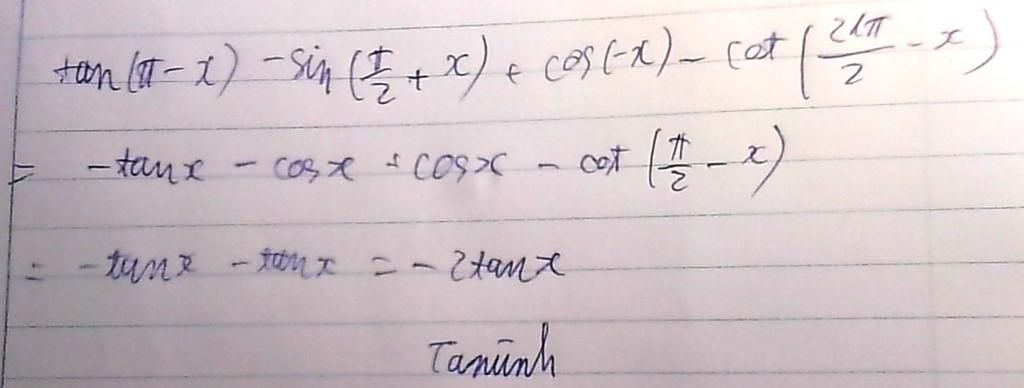 tan(π-x) -sin(π/2 + x) + cos(-x) - cot(21π/2 - x)
= -tanx - cosx + cosx - cot(π/2 - x)
= -tanx - tanx = -2tanx